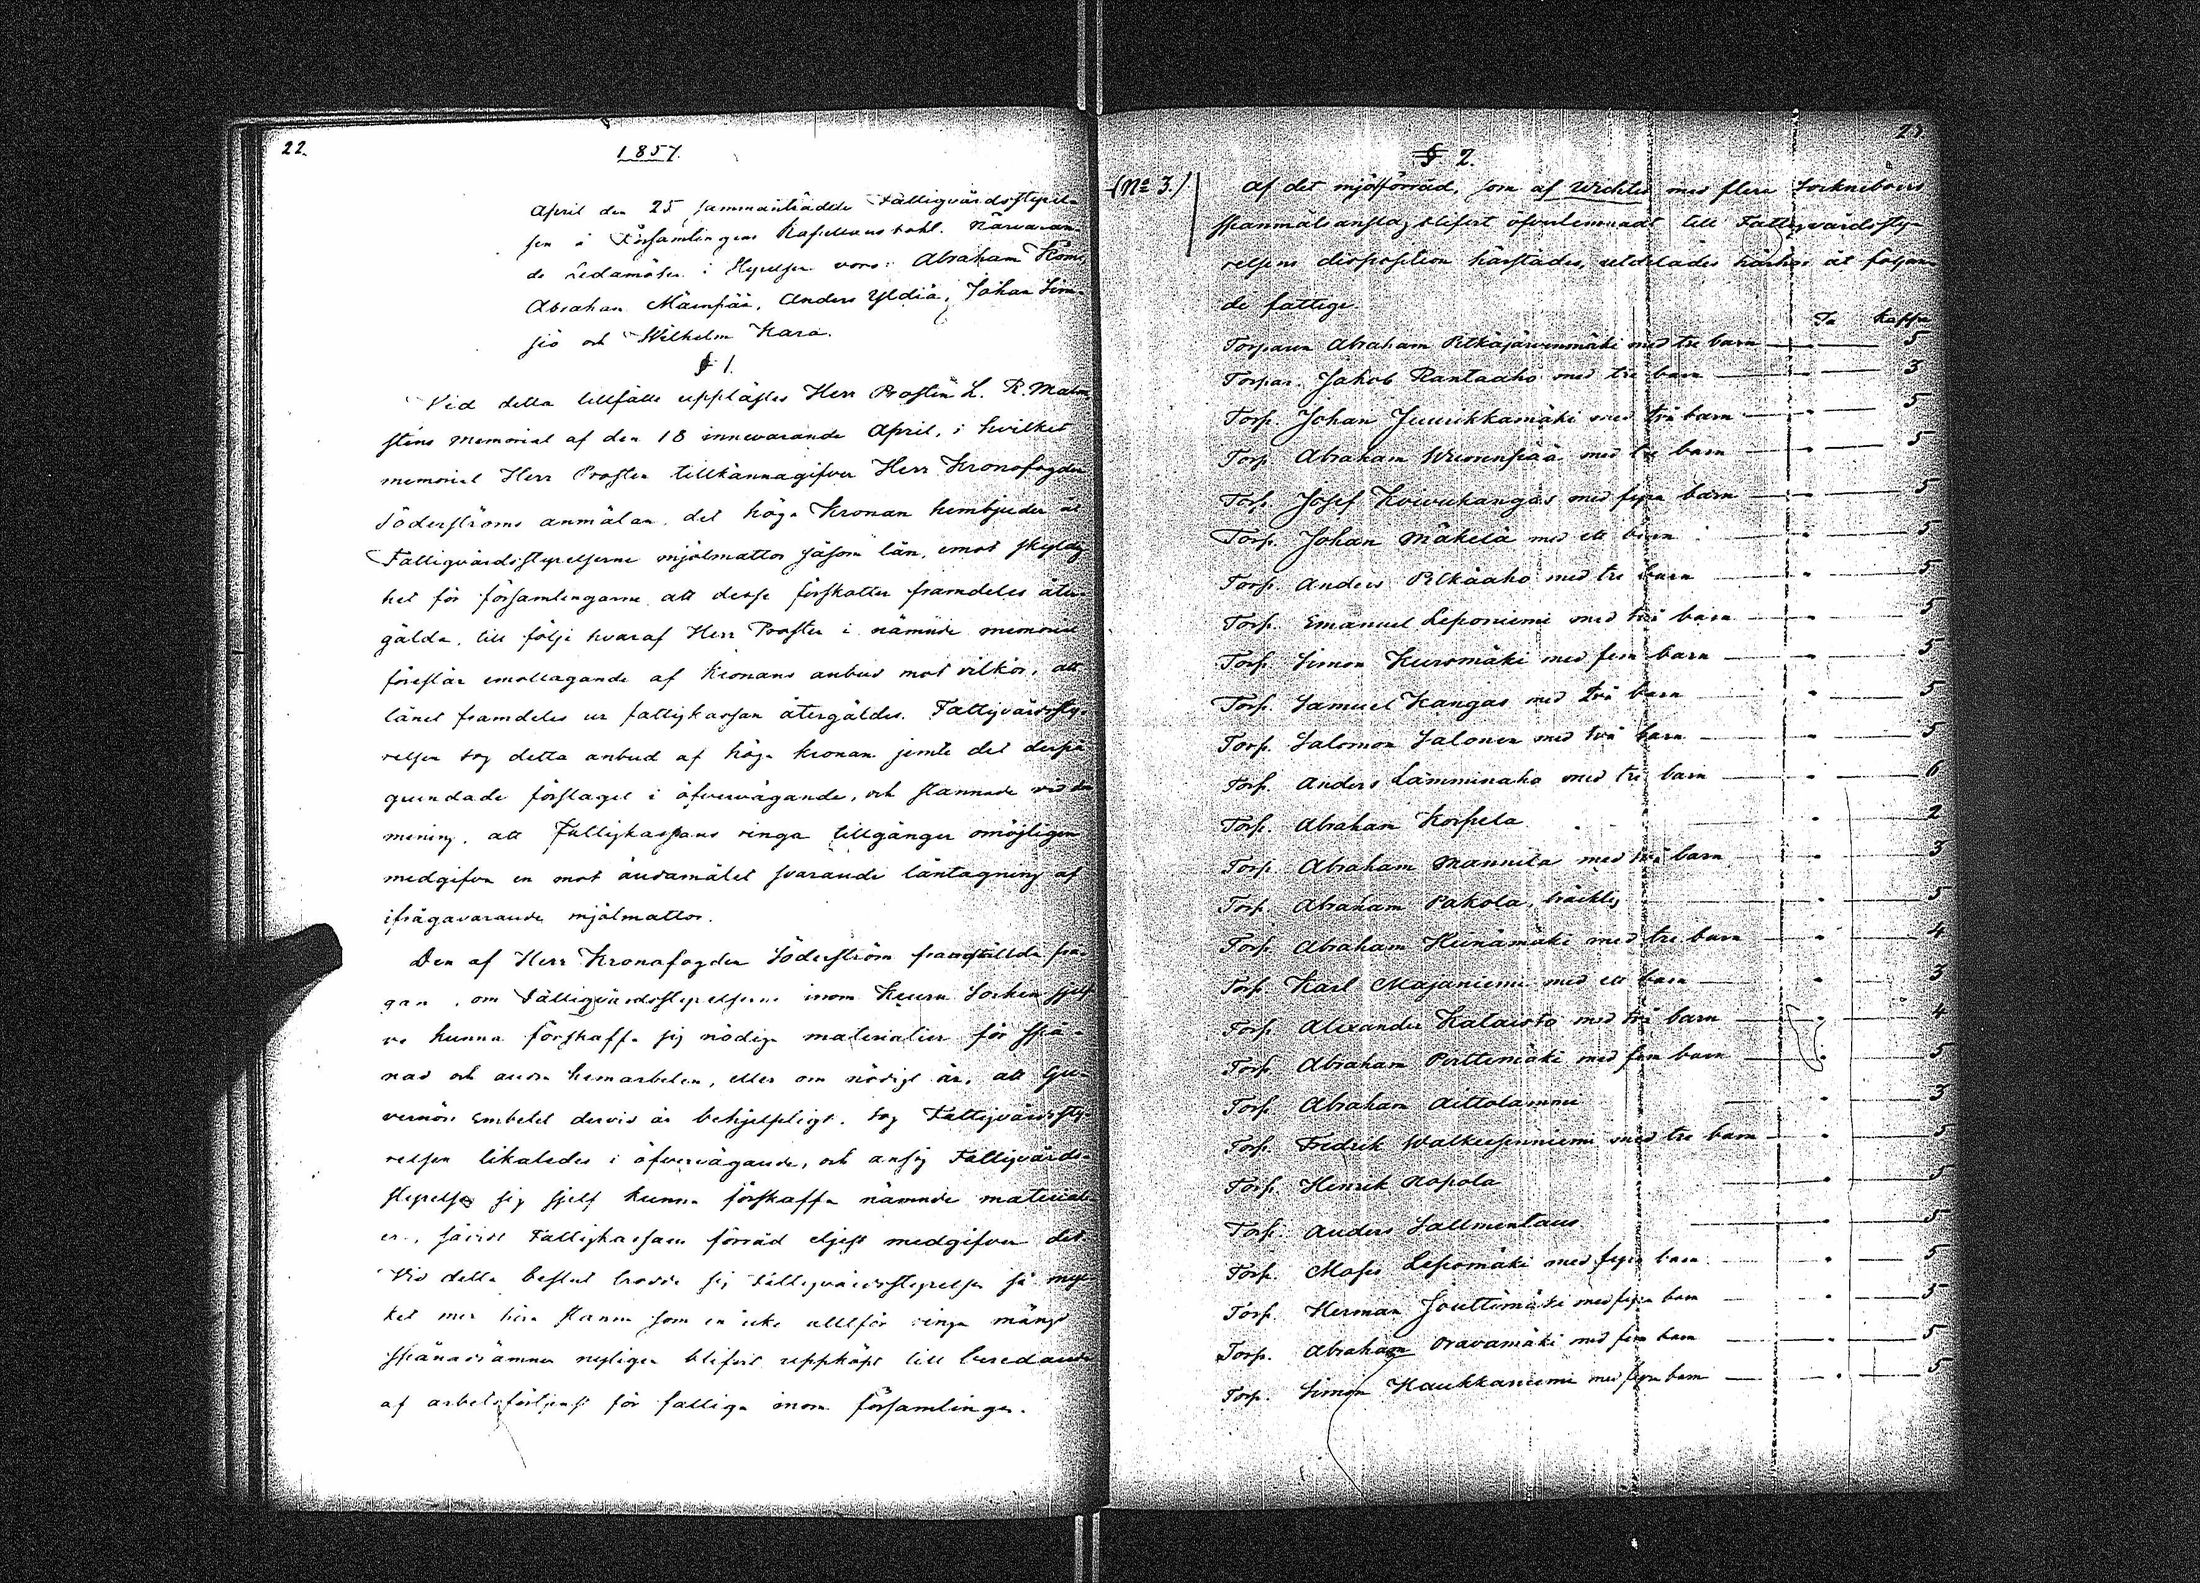 22.
1857.
April den 25 sammanträdde Fattigvårdsstyrel-
sen i Församlingens Kapellansbohl. Närvaran-
de Ledamöter i Styrelsen voro: Abraham
Abraham Mäenpää, Anders Yldiä, Johan Sim-
sjö och Wilhelm Kara.
§ 1.
Vid detta tillfälle upplästes Herr Prosten L. R. Malm
stens memorial af den 18 innevarande April, i hvilket
memorial Herr Prosten tillkännagifver Herr Kronofogden
Söderströms anmälan, det höga Kronan hembjuder åt
Fattigvårdsstyrelserne mjölmattor såsom lån, emot skyldig
het för församlingarne att desse förskotter framdeles åter-
gälda, till följe hvaraf Herr Prosten i nämnde memorial
föreslår emottagande af Kronans anbud mot vilkor, att
lånet framdeles ur fattigkassan återgäldes. Fattigvårdssty-
relsen tog detta anbud af höga Kronan jemte det derpå
grundade förslaget i öfvervägande, och stannade vid den
mening, att Fattigkassans ringa tillgångar omöjligen
medgifva en mot ändamålet svarande låntagning af
ifrågavarande mjölmattor.
Den af Herr Kronofogden Söderström framställda frå-
gan, om Fattigvårdsstyrelserne inom Keuru Socken sjelf
va kunna förskaffa sig nödiga materialier för spå-
nad och andra hemarbeten, eller om nödigt är, att Gu-
vernörs Embetet dervid är behjelpligt, tog Fattigvårdssty-
relsen likaledes i öfvervägande, och ansåg Fattigvårds-
styrelsen sig sjelf kunna förskaffa nämnde materiali-
er, såvidt Fattigkassans förråd eljest medgifver det.
Vid detta beslut trodde sig Fattigvårdsstyrelsen så myc-
ket mer böra stanna som en icke alltför ringa mängd
spånadsämnen nyligen blifvit uppköpt till beredande
af arbetsförtjenst för fattiga inom församlingen.
23.
§ 2.
(No 3.)
Af det mjölförråd, som af med flere Socknebörs
spanmålsanslag blifvit öfverlemnadt till Fattigvårdssty-
relsens disposition härstädes, utdelades härhos åt följan-
de fattige.
Ta Kappa
Torparen Abraham Pitkäjärvenmäki med tre barn " 5
Torpar. Jakob Rantaaho med tre barn " 3
Torp. Johan Juurikkamäki med två barn " 5
Torp. Abraham Wuorenpää med tre barn " 5
Torp. Josef Koivukangas med fyra barn " 5
Torp. Johan Mäkelä med ett barn " 5
Torp. Anders Pitkäaho med tre barn " 5
Torp. Emanuel Leponiemi med två barn " 5
Torp. Simon Kuromäki med fem barn " 5
Torp. Samuel Kangas med två barn " 5
Torp. Salomon Salonen med två barn " 5
Torp. Anders Lamminaho med tre barn " 6
Torp. Abraham Korpela " 2
Torp. Abraham Mannila med två barn " 3
Torp. Abraham Pakola, bräcklig " 5
Torp. Abraham Heinämäki med tre barn " 4
Torp. Karl Majaniemi med ett barn " 3
Torp. Alexander Kalaisto med två barn " 4
Torp. Abraham Perttimäki med fem barn " 5
Torp. Abraham Aittolammi " 3
Torp. Fredrik Walkeisenniemi med tre barn " 5
Torp. Henrik Kopola " 5
Torp. Anders Sallmentaus " 5
Torp. Moses Lepomäki med fyra barn " 5
Torp. Herman Jouttimäki med fyra barn " 5
Torp. Abraham Oravamäki med fem barn " 5
Torp. Simon Haukkaniemi med fyra barn " 5